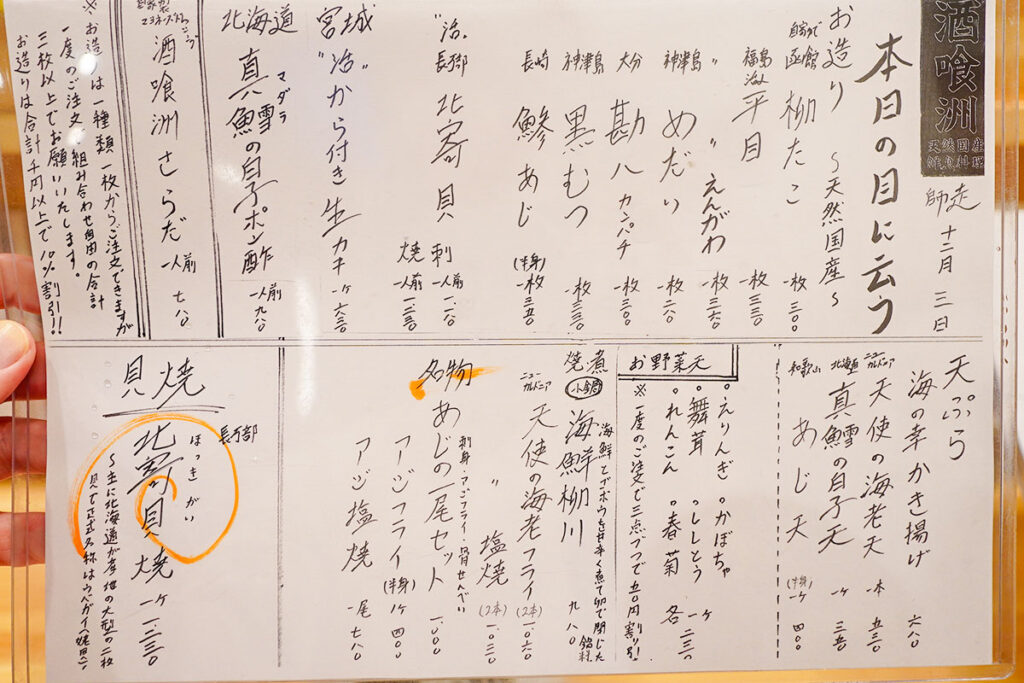 酒喰洲
天然国産
鮮魚料理
師走 十二月 三日
本日の目に云う
お造り 〜天然国産〜
函館 柳たこ 一枚 三〇〇
福島 平目 一枚 三三〇
〃 〃 えんがわ 一枚 三六〇
神津島 めだい 一枚 二八〇
大分 勘八 カンパチ 一枚 三〇〇
神津島 黒むつ 一枚 三三〇
長崎 鯵 あじ (半身) 一枚 三五〇
"活" 長万部 北寄貝
刺 一人前 一、一八〇
焼 一人前 一、二三〇
宮城 "活"から付き生カキ 一ヶ 六三〇
北海道 真鱈の白子ポン酢 一人前 一、九八〇
マダラ
酒喰洲さらだ 一人前 七八〇
※お造りは一種類一枚からご注文できますが
一度のご注文、組み合わせ自由の合計
三枚以上でお願いいたします。
お造りは合計千円以上で10%割引!!
天ぷら
海の幸かき揚げ 六八〇
ニューカレドニア 天使の海老天 一本 五三〇
北海道 真鱈の白子天 一ヶ 三五〇
和歌山 あじ天 (半身) 一ヶ 四〇〇
お野菜天
。えりんぎ 。かぼちゃ
。舞茸 。ししとう
。れんこん 。春菊 各 一ヶ 二三〇
※一度のご注文で三点づつで五〇円割り引!
焼煮
小鍋 海鮮柳川 九八〇
海鮮とゴボウを甘辛く煮て卵で閉じた
ニューカレドニア 天使の海老フライ (2本) 一、〇六〇
〃 塩焼 (2本) 一、〇三〇
名物 あじの一尾セット 一、〇〇〇
刺身・アジフライ・骨せんべい
アジフライ (半身) 1ヶ 四〇〇
アジ塩焼 一尾 七八〇
貝焼
長万部
ほっきがい
北寄貝焼 一ヶ 一、二三〇
〜主に北海道が産地の大型の二枚
貝で正式名称はウバガイ(姥貝)〜